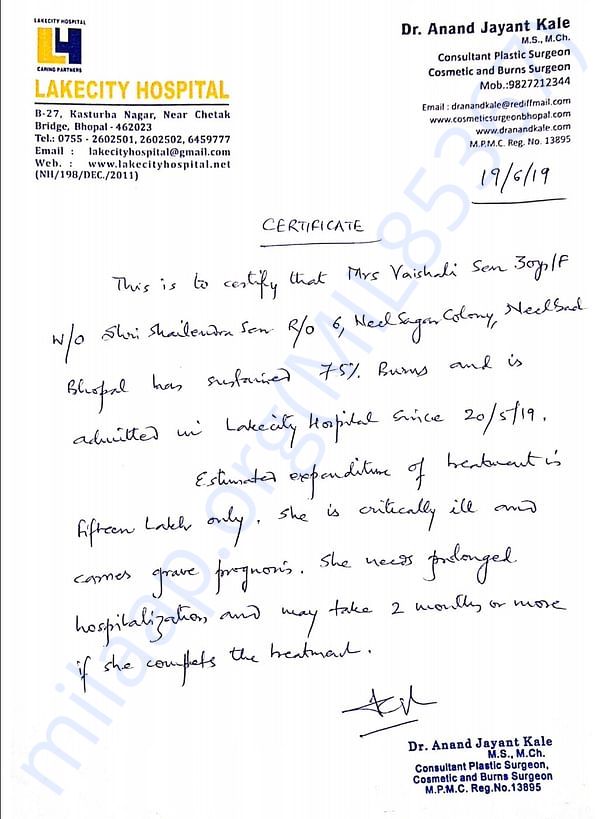 LAKECITY HOSPITAL
CARING PARTNERS
LAKECITY HOSPITAL
B-27, Kasturba Nagar, Near Chetak
Bridge, Bhopal - 462023
Tel.: 0755 - 2602501, 2602502, 6459777
Email : lakecityhospital@gmail.com
Web. : www.lakecityhospital.net
(NH/198/DEC./2011)
Dr. Anand Jayant Kale
M.S., M.Ch.
Consultant Plastic Surgeon
Cosmetic and Burns Surgeon
Mob.:9827212344
Email : dranandkale@rediffmail.com
www.cosmeticsurgeonbhopal.com
www.dranandkale.com
M.P.M.C. Reg. No. 13895
19/6/19
CERTIFICATE
This is to certify that Mrs Vaishali Sen 30y/F
W/o Shri Shailendra Sen R/o 6, Neel Sagar Colony, Neelbad
Bhopal has sustained 75% Burns and is
admitted in Lakecity Hospital since 20/5/19.
Estimated expenditure of treatment is
fifteen Lakh only. She is critically ill and
carries grave prognosis. She needs prolonged
hospitalization and may take 2 months or more
if she complets the treatment.
Dr. Anand Jayant Kale
M.S., M.Ch.
Consultant Plastic Surgeon,
Cosmetic and Burns Surgeon
M.P.M.C. Reg.No.13895